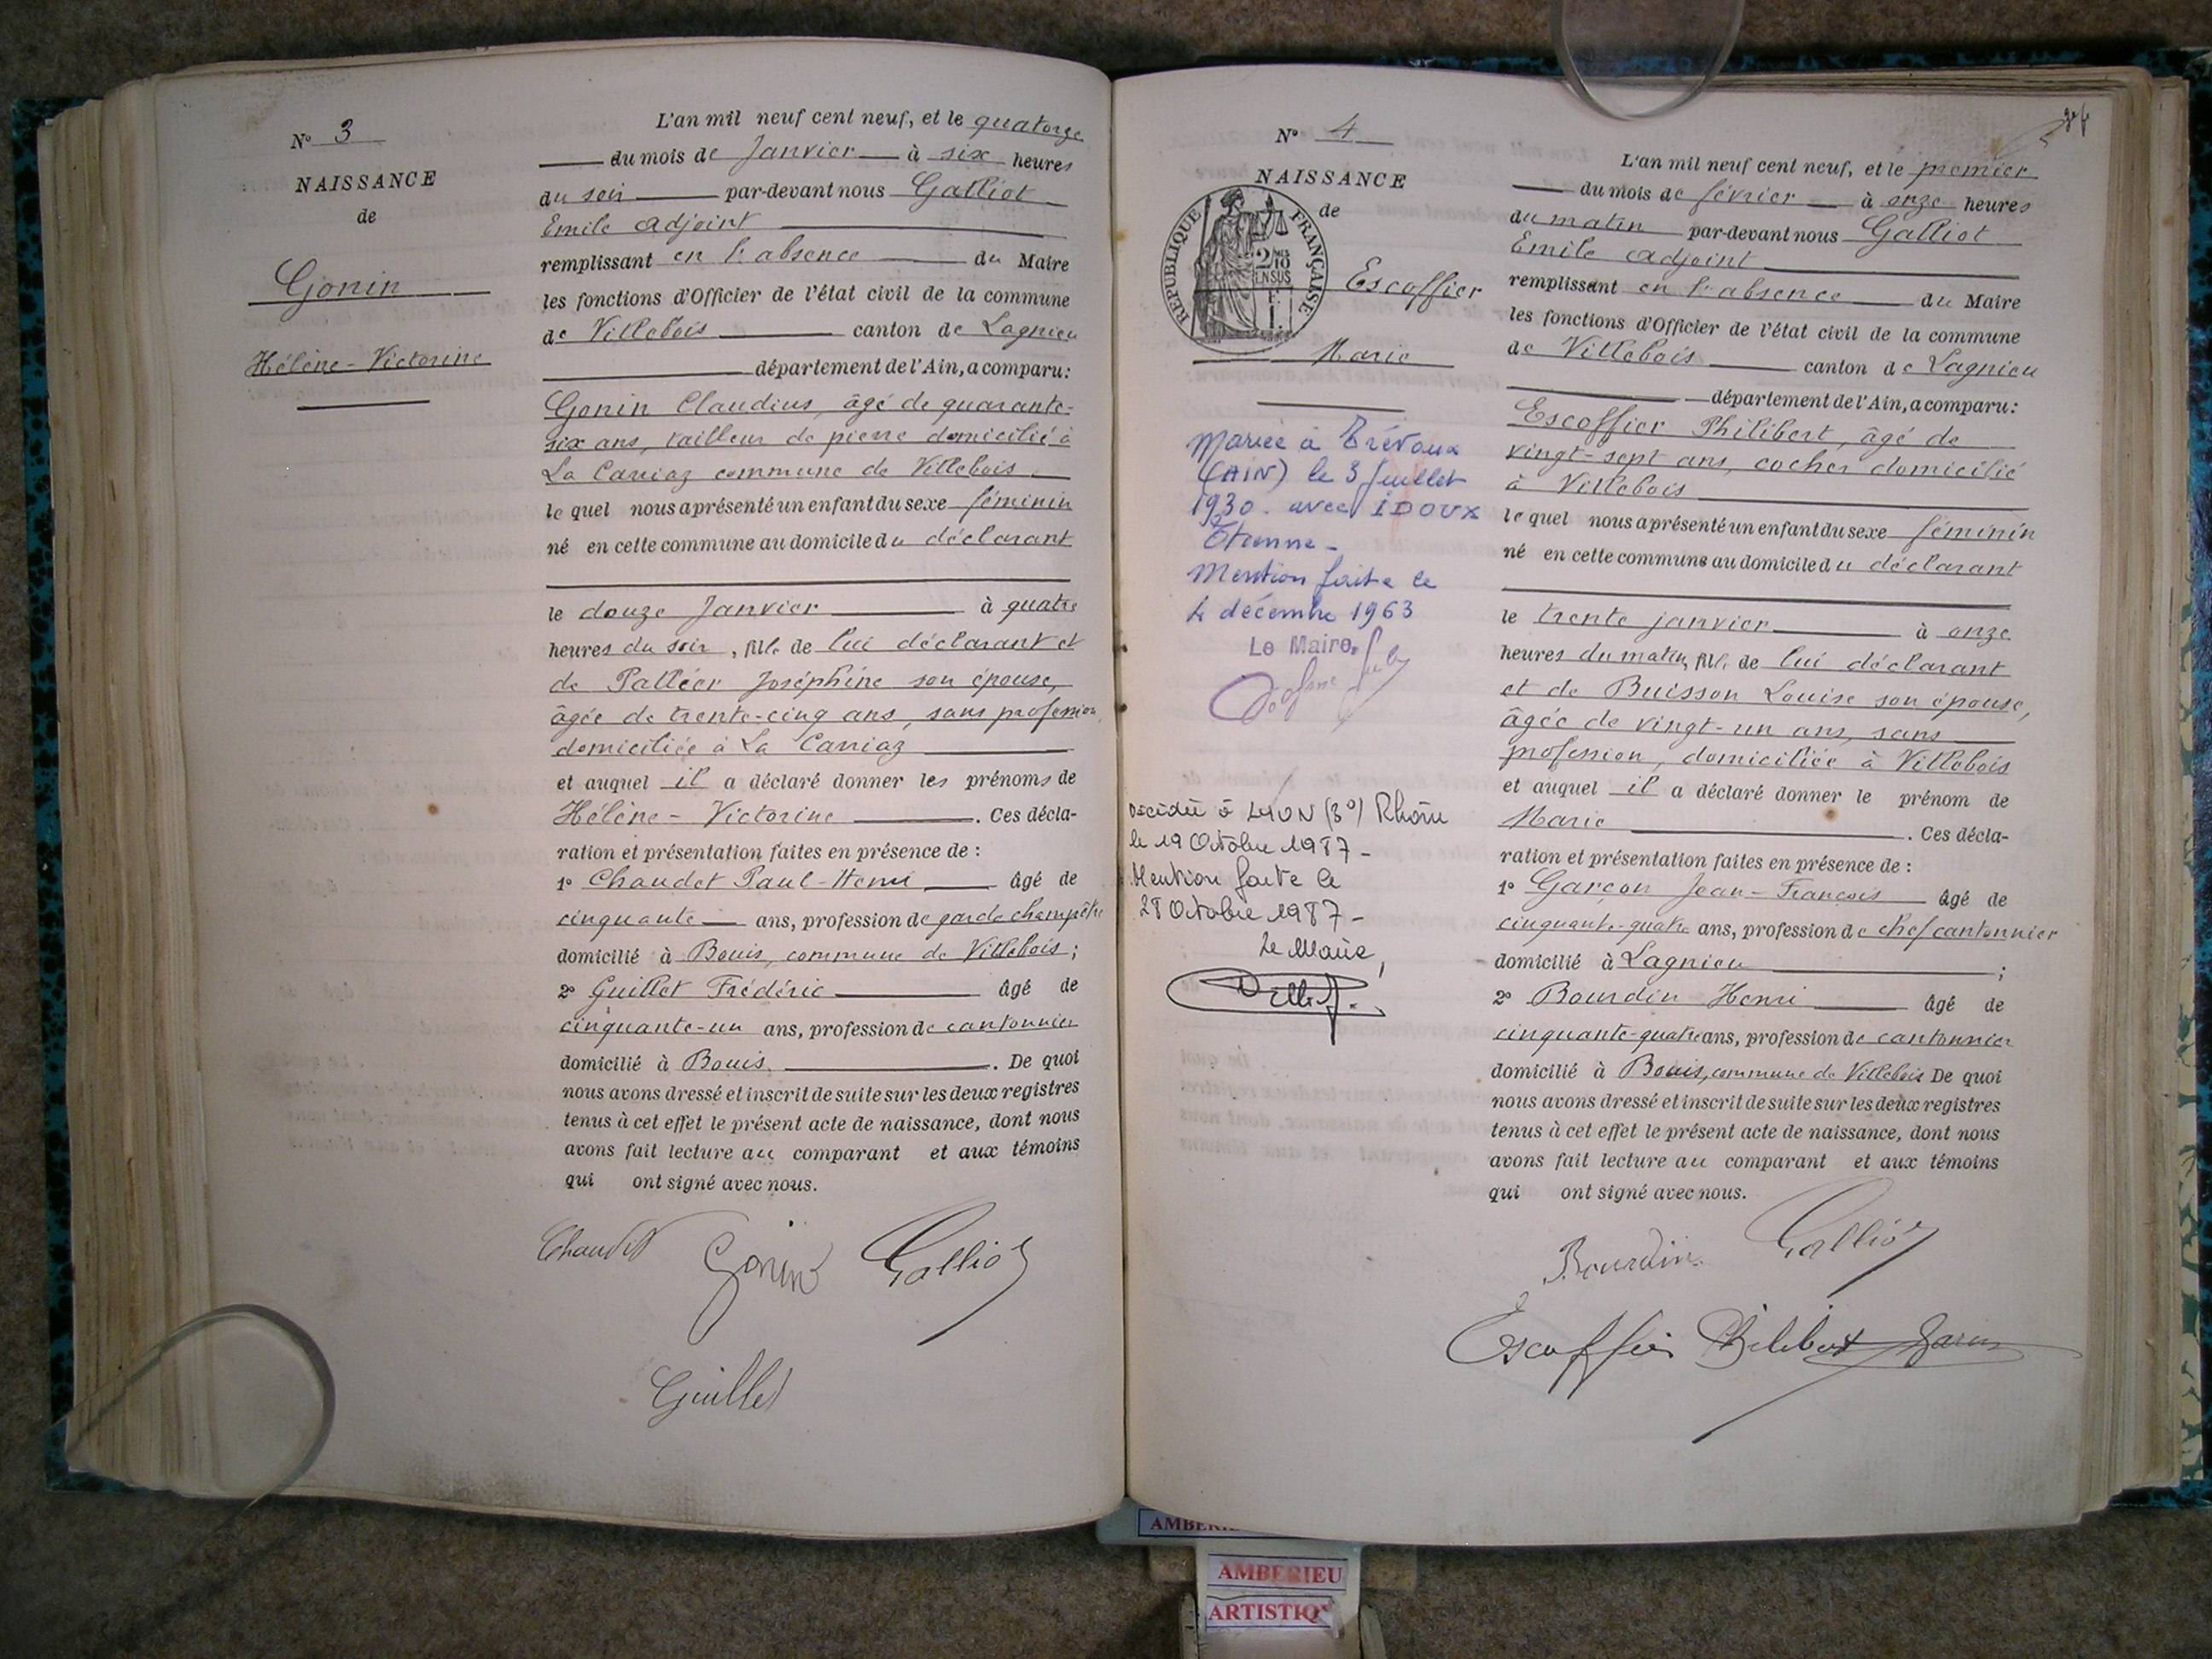 N° 3
NAISSANCE
de
Gonin
Hélène-Victorine
L'an mil neuf cent neuf, et le quatorze
du mois de Janvier à six heures
du soir par-devant nous Galliot
Emile adjoint
remplissant en l'absence du Maire
les fonctions d'Officier de l'état civil de la commune
de Villebois canton de Lagnieu
département de l'Ain, a comparu:
Gonin Claudius, âgé de quarante-
six ans, tailleur de pierre domicilié à
La Carriaz commune de Villebois
le quel nous a présenté un enfant du sexe féminin
né en cette commune au domicile du déclarant
le douze Janvier à quatre
heures du soir, fille de lui déclarant et
de Palléer Joséphine son épouse,
âgée de trente-cinq ans, sans profession,
domiciliée à La Carriaz
et auquel il a déclaré donner les prénoms de
Hélène-Victorine. Ces décla-
ration et présentation faites en présence de :
1° Chaudet Paul-Henri âgé de
cinquante ans, profession de garde champêtre
domicilié à Bouis, commune de Villebois ;
2° Guillet Frédéric âgé de
cinquante-un ans, profession de cantonnier
domicilié à Bouis. De quoi
nous avons dressé et inscrit de suite sur les deux registres
tenus à cet effet le présent acte de naissance, dont nous
avons fait lecture au comparant et aux témoins
qui ont signé avec nous.
Chaudet Gonin Galliot
Guillet
24
N° 4
NAISSANCE
de
REPUBLIQUE FRANÇAISE
2/10 EN SUS
1 F.
Escoffier
Marie
Mariée à Trévoux
(AIN) le 3 Juillet
1930. avec IDOUX
Etienne -
Mention faite le
4 décembre 1963
Le Maire,
Décédée à LYON (3°) Rhône
le 19 Octobre 1987 -
Mention faite le
28 Octobre 1987 -
Le Maire,
L'an mil neuf cent neuf, et le premier
du mois de février à onze heures
du matin par-devant nous Galliot
Emile adjoint
remplissant en l'absence du Maire
les fonctions d'Officier de l'état civil de la commune
de Villebois canton de Lagnieu
département de l'Ain, a comparu:
Escoffier Philibert, âgé de
vingt-sept ans, cocher domicilié
à Villebois
le quel nous a présenté un enfant du sexe féminin
né en cette commune au domicile du déclarant
le trente janvier à onze
heures du matin, fille de lui déclarant
et de Buisson Louise son épouse,
âgée de vingt-un ans, sans
profession, domiciliée à Villebois
et auquel il a déclaré donner le prénom de
Marie. Ces décla-
ration et présentation faites en présence de :
1° Garçon Jean-François âgé de
cinquante-quatre ans, profession de chef cantonnier
domicilié à Lagnieu ;
2° Bourdin Henri âgé de
cinquante-quatre ans, profession de cantonnier
domicilié à Bouis, commune de Villebois De quoi
nous avons dressé et inscrit de suite sur les deux registres
tenus à cet effet le présent acte de naissance, dont nous
avons fait lecture au comparant et aux témoins
qui ont signé avec nous.
Bourdin Galliot
Escoffier Philibert Garçon
AMBERIEU
ARTISTIQ